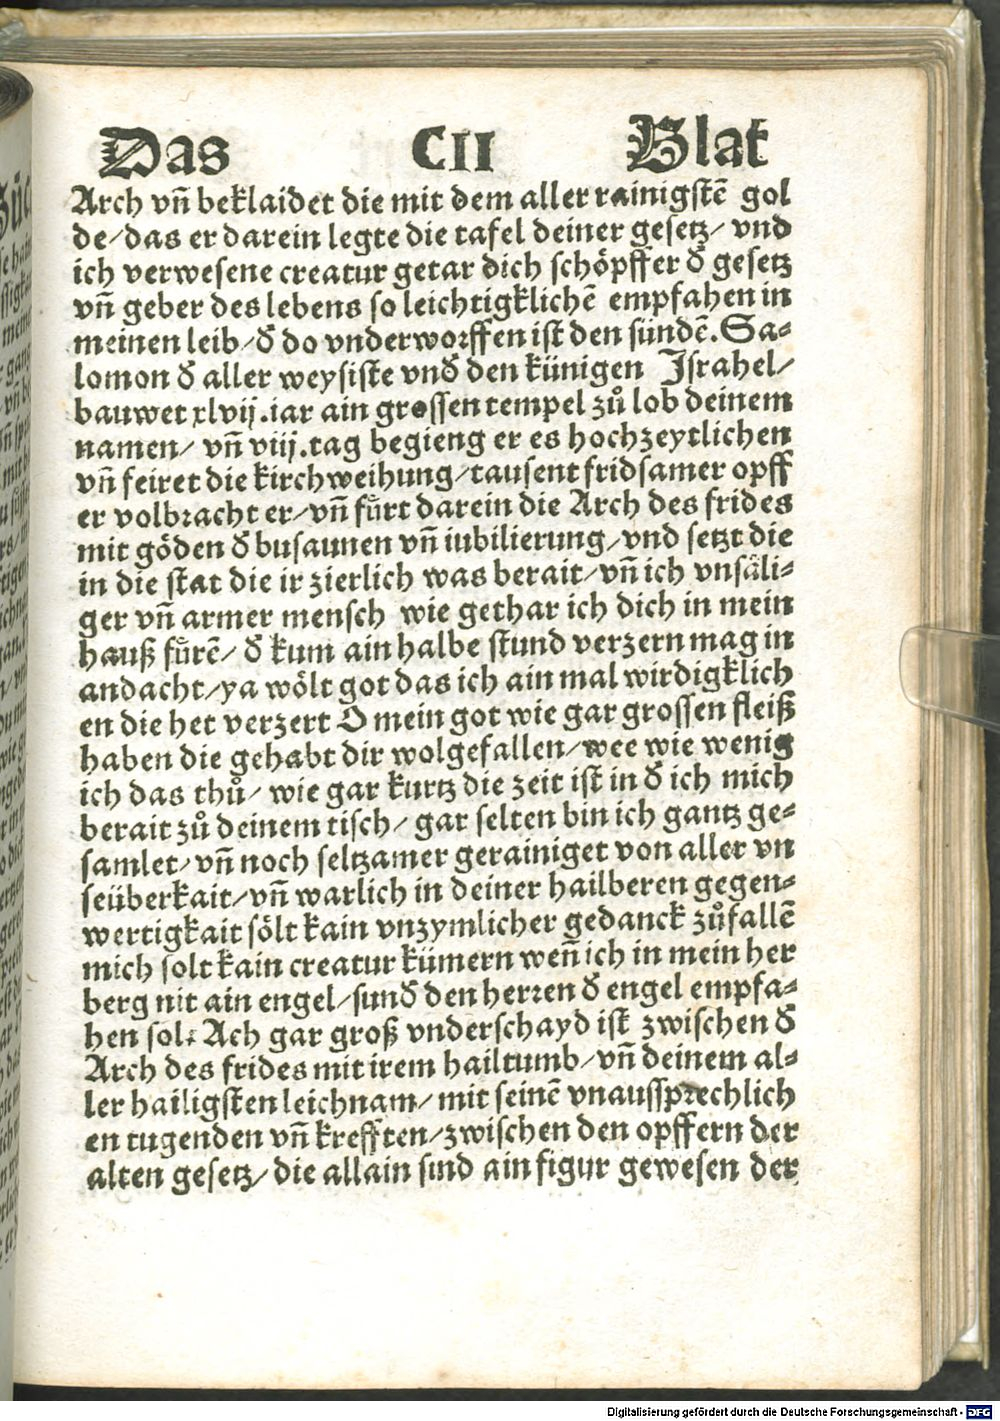 Das CII Blat
Arch vñ beklaidet die mit dem aller rainigstē gol
de/das er darein legte die tafel deiner gesetz/ vnd
ich verwesene creatur getar dich schöpffer đ gesetz
vñ geber des lebens so leichtigklichē empfahen in
meinen leib/đ do vnderworffen ist den sündē. Sa-
lomon đ aller weysiste vnđ den künigen Israhel/
bauwet xlvij.iar ain grossen tempel zů lob deinem
namen/ vñ viij.tag begieng er es hochzeytlichen
vñ feiret die kirchweihung/tausent fridsamer opff
er volbracht er/vñ fůrt darein die Arch des frides
mit göden đ busaunen vñ iubilierung/vnd setzt die
in die stat die ir zierlich was berait/vñ ich vnsäli-
ger vñ armer mensch wie gethar ich dich in mein
hauß fůrē/ đ kum ain halbe stund verzern mag in
andacht/ya wölt got das ich ain mal wirdigklich
en die het verzert O mein got wie gar grossen fleiß
haben die gehabt dir wolgefallen/wee wie wenig
ich das thů/ wie gar kurtz die zeit ist in đ ich mich
berait zů deinem tisch/ gar selten bin ich gantz ge-
samlet/vñ noch seltzamer gerainiget von aller vn
seüberkait/vñ warlich in deiner hailberen gegen-
wertigkait sölt kain vnzymlicher gedanck zůfallē
mich solt kain creatur kümern weñ ich in mein her
berg nit ain engel/sunđ den herren đ engel empfa-
hen sol. Ach gar groß vnderschayd ist zwischen đ
Arch des frides mit irem hailtumb/vñ deinem al-
ler hailigsten leichnam/mit seinē vnaussprechlich
en tugenden vñ krefften/zwischen den opffern der
alten gesetz/die allain sind ain figur gewesen der
Digitalisierung gefördert durch die Deutsche Forschungsgemeinschaft - DFG